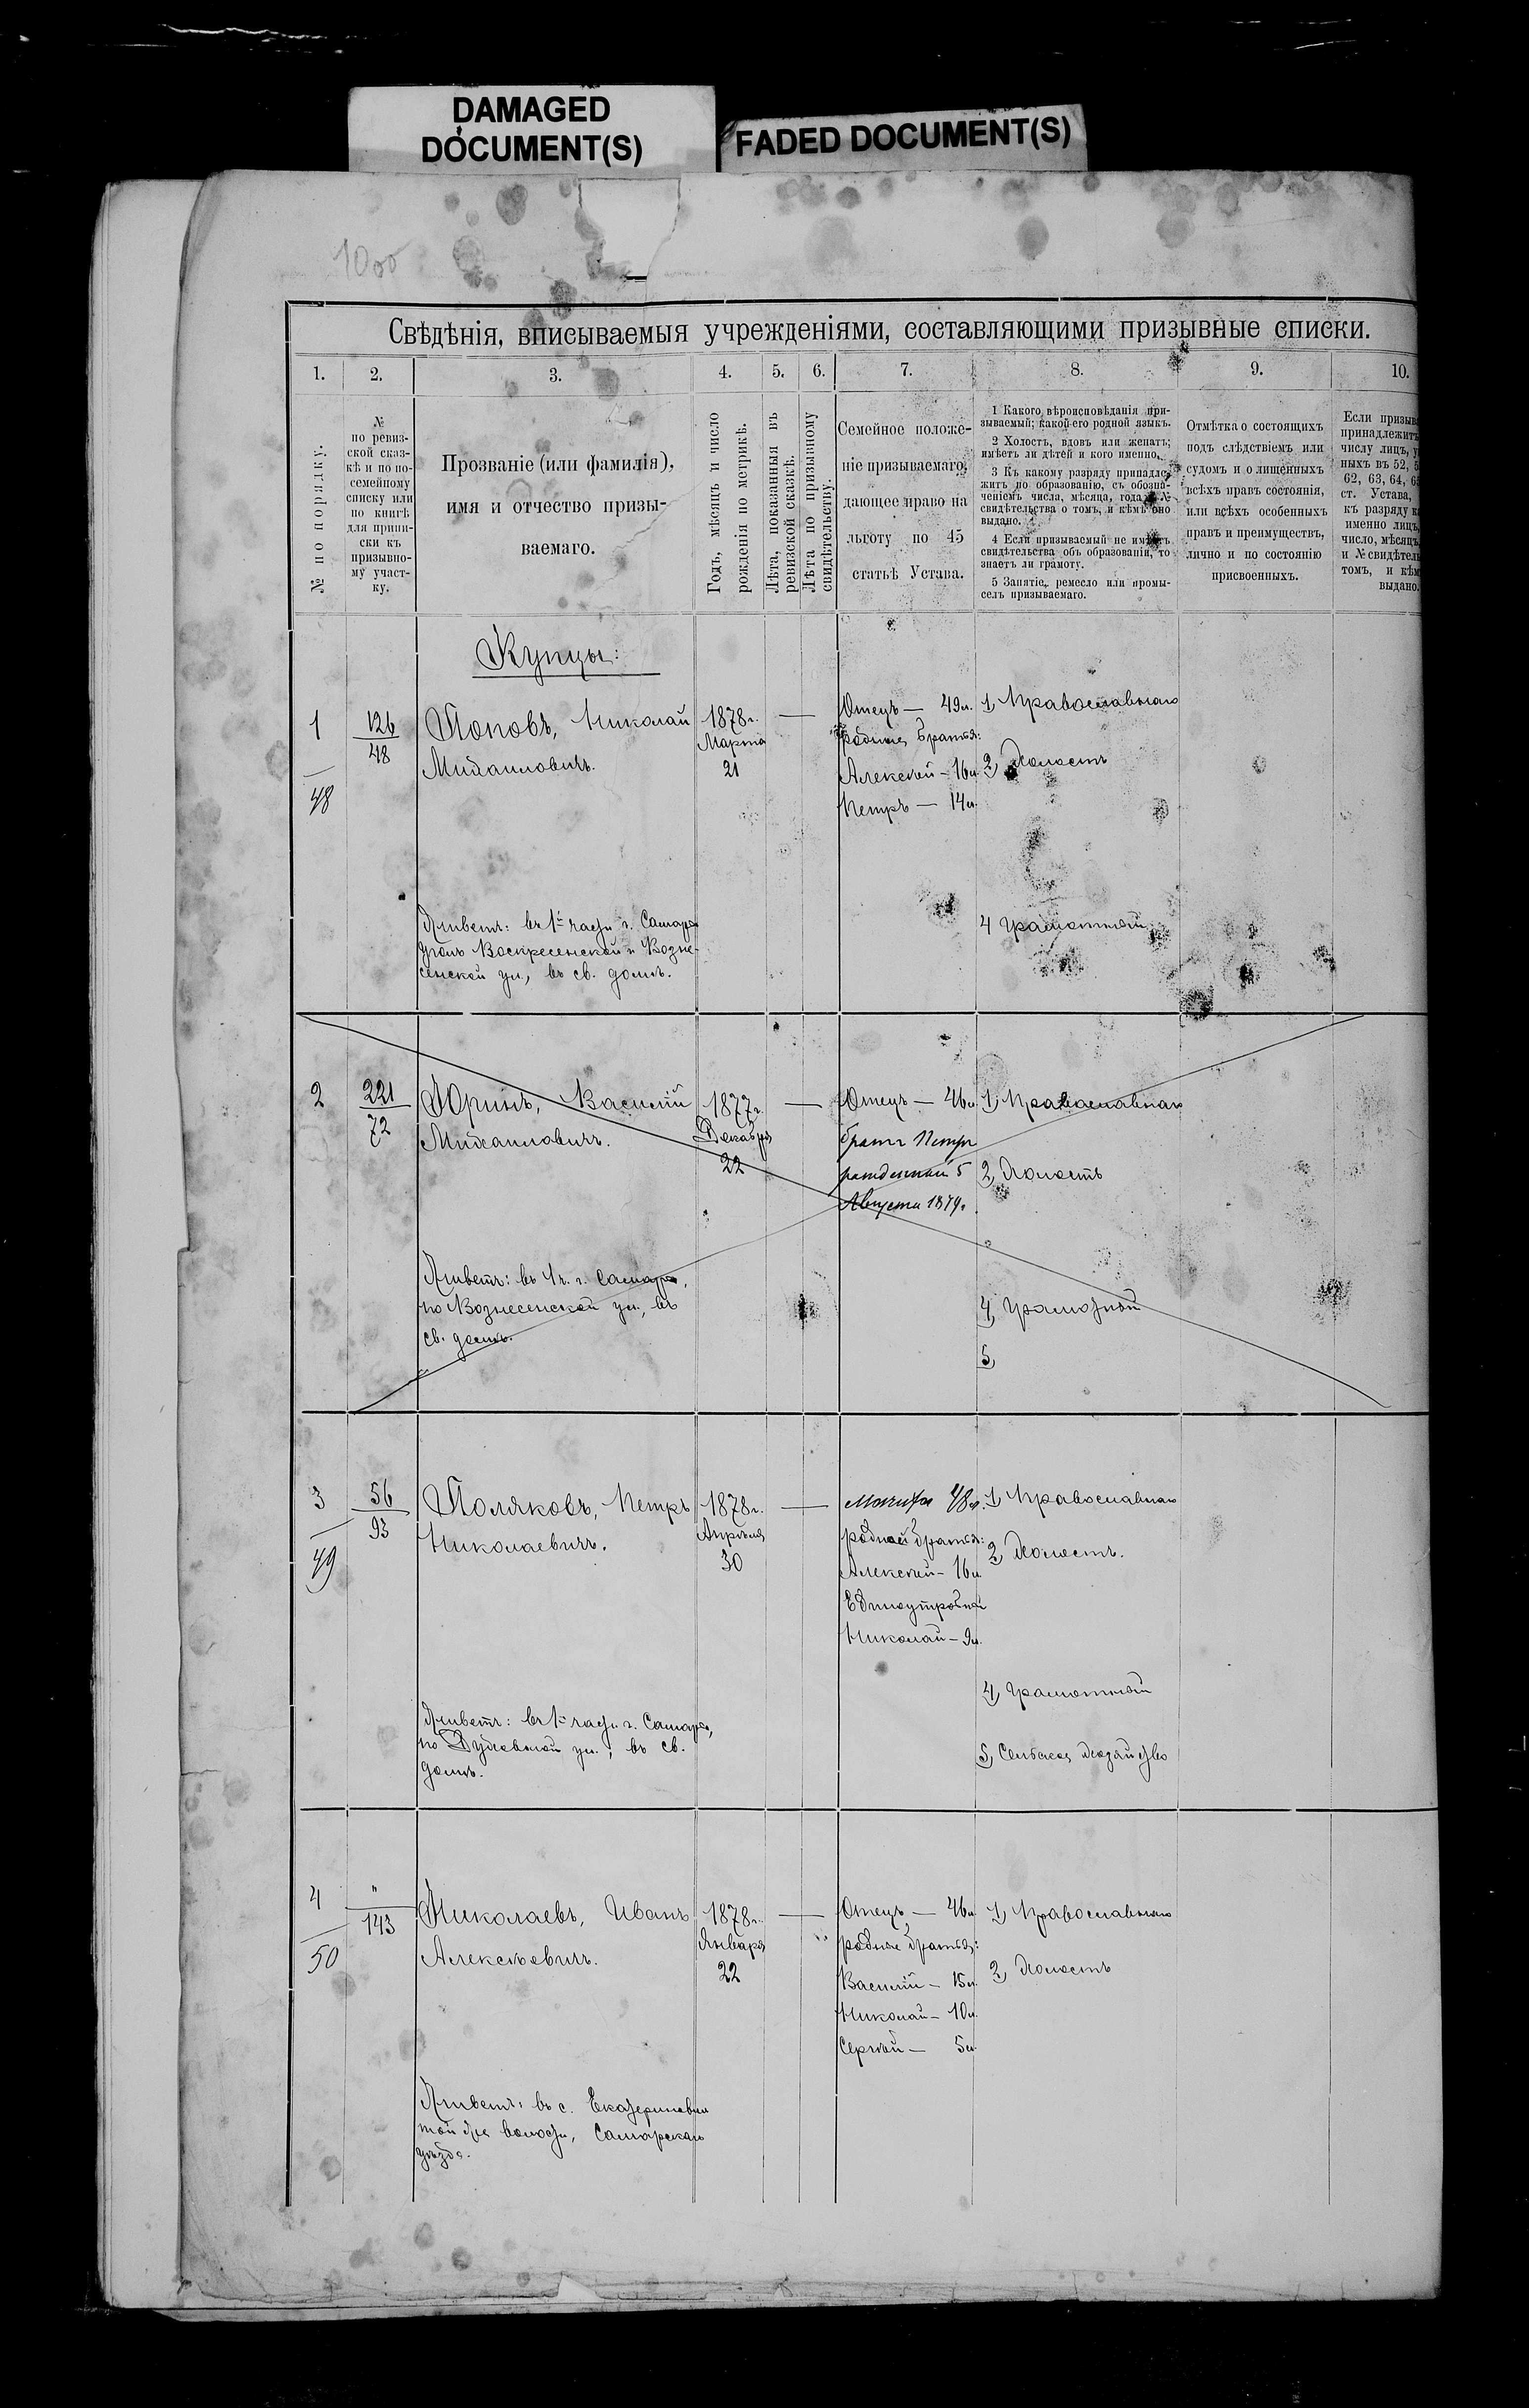 DAMAGED
DOCUMENT(S)
FADED DOCUMENT(S)
1000
Свѣдѣнія, вписываемыя учрежденіями, составляющими призывные списки.
1.
2.
3.
4.
5.
6.
7.
8.
9.
10.
№ по порядку.
№
по ревиз-
ской сказ-
кѣ и по по-
семейному
списку или
по книгѣ
для припи-
ски къ
призывно-
му участ-
ку.
Прозваніе (или фамилія),
имя и отчество призы-
ваемаго.
Годъ, мѣсяцъ и число
рожденія по метрикѣ.
Лѣта, показанныя въ
ревизской сказкѣ.
Лѣта по призывному
свидѣтельству.
Семейное положе-
ніе призываемаго,
дающее право на
льготу по 45
статьѣ Устава.
1 Какого вѣроисповѣданія при-
зываемый; какой его родной языкъ.
2 Холостъ, вдовъ или женатъ;
имѣетъ ли дѣтей и кого именно.
3 Къ какому разряду принадле-
житъ по образованію, съ обозна-
ченіемъ числа, мѣсяца, года и №
свидѣтельства о томъ, и кѣмъ оно
выдано.
4 Если призываемый не имѣетъ
свидѣтельства объ образованіи, то
знаетъ ли грамоту.
5 Занятіе, ремесло или промы-
селъ призываемаго.
Отмѣтка о состоящихъ
подъ слѣдствіемъ или
судомъ и о лишенныхъ
всѣхъ правъ состоянія,
или всѣхъ особенныхъ
правъ и преимуществъ,
лично и по состоянію
присвоенныхъ.
Если призыв
принадлежитъ
числу лицъ, у
ныхъ въ 52, 5
62, 63, 64, 6
ст. Устава,
къ разряду к
именно лицъ,
число, мѣсяцъ,
и № свидѣтел
томъ, и кѣм
выдано.
Купцы:
1
48
126
48
Поповъ, Николай
Михаиловичъ.
1878г.
Марта
21
Отецъ — 49л.
Родные братья:
Алексѣй – 16л.
Петръ — 14л.
1) Православнаго
2) Холостъ
4 Грамотный
Живетъ: въ 1й части г. Самары
уголъ Воскресенской и Возне-
сенской ул., въ св. домѣ.
2
221
72
Юринъ, Василій
Михаиловичъ.
1877г.
Декабря
22
Отецъ — 46л.
братъ Петръ
рожденный 5
Августа 1879г.
1) Православнаго
2) Холостъ
4) Грамотный
5)
Живетъ: въ 1 ч. г. Самары,
по Вознесенской ул., въ
св. домѣ.
3
49
56
93
Поляковъ, Петръ
Николаевичъ.
1878г.
Апрѣля
30
Мачиха 48л.
родной братья:
Алексѣй – 16л.
Единоутробный
Николай – 9л.
1) Православнаго
2) Холостъ.
4) Грамотный
5) Сельское хозяйство
Живетъ: въ 1й части г. Самары,
по ул., въ св.
домѣ.
4
50
"
143
Николаевъ, Иванъ
Алексѣевичъ.
1878г.
Января
22
Отецъ — 46л.
родные братья:
Василій – 15л.
Николай – 10л.
Сергѣй — 5л.
1) Православнаго
2) Холостъ
Живетъ: въ с. Екатериновки
той же волости, Самарскаго
уѣзда.